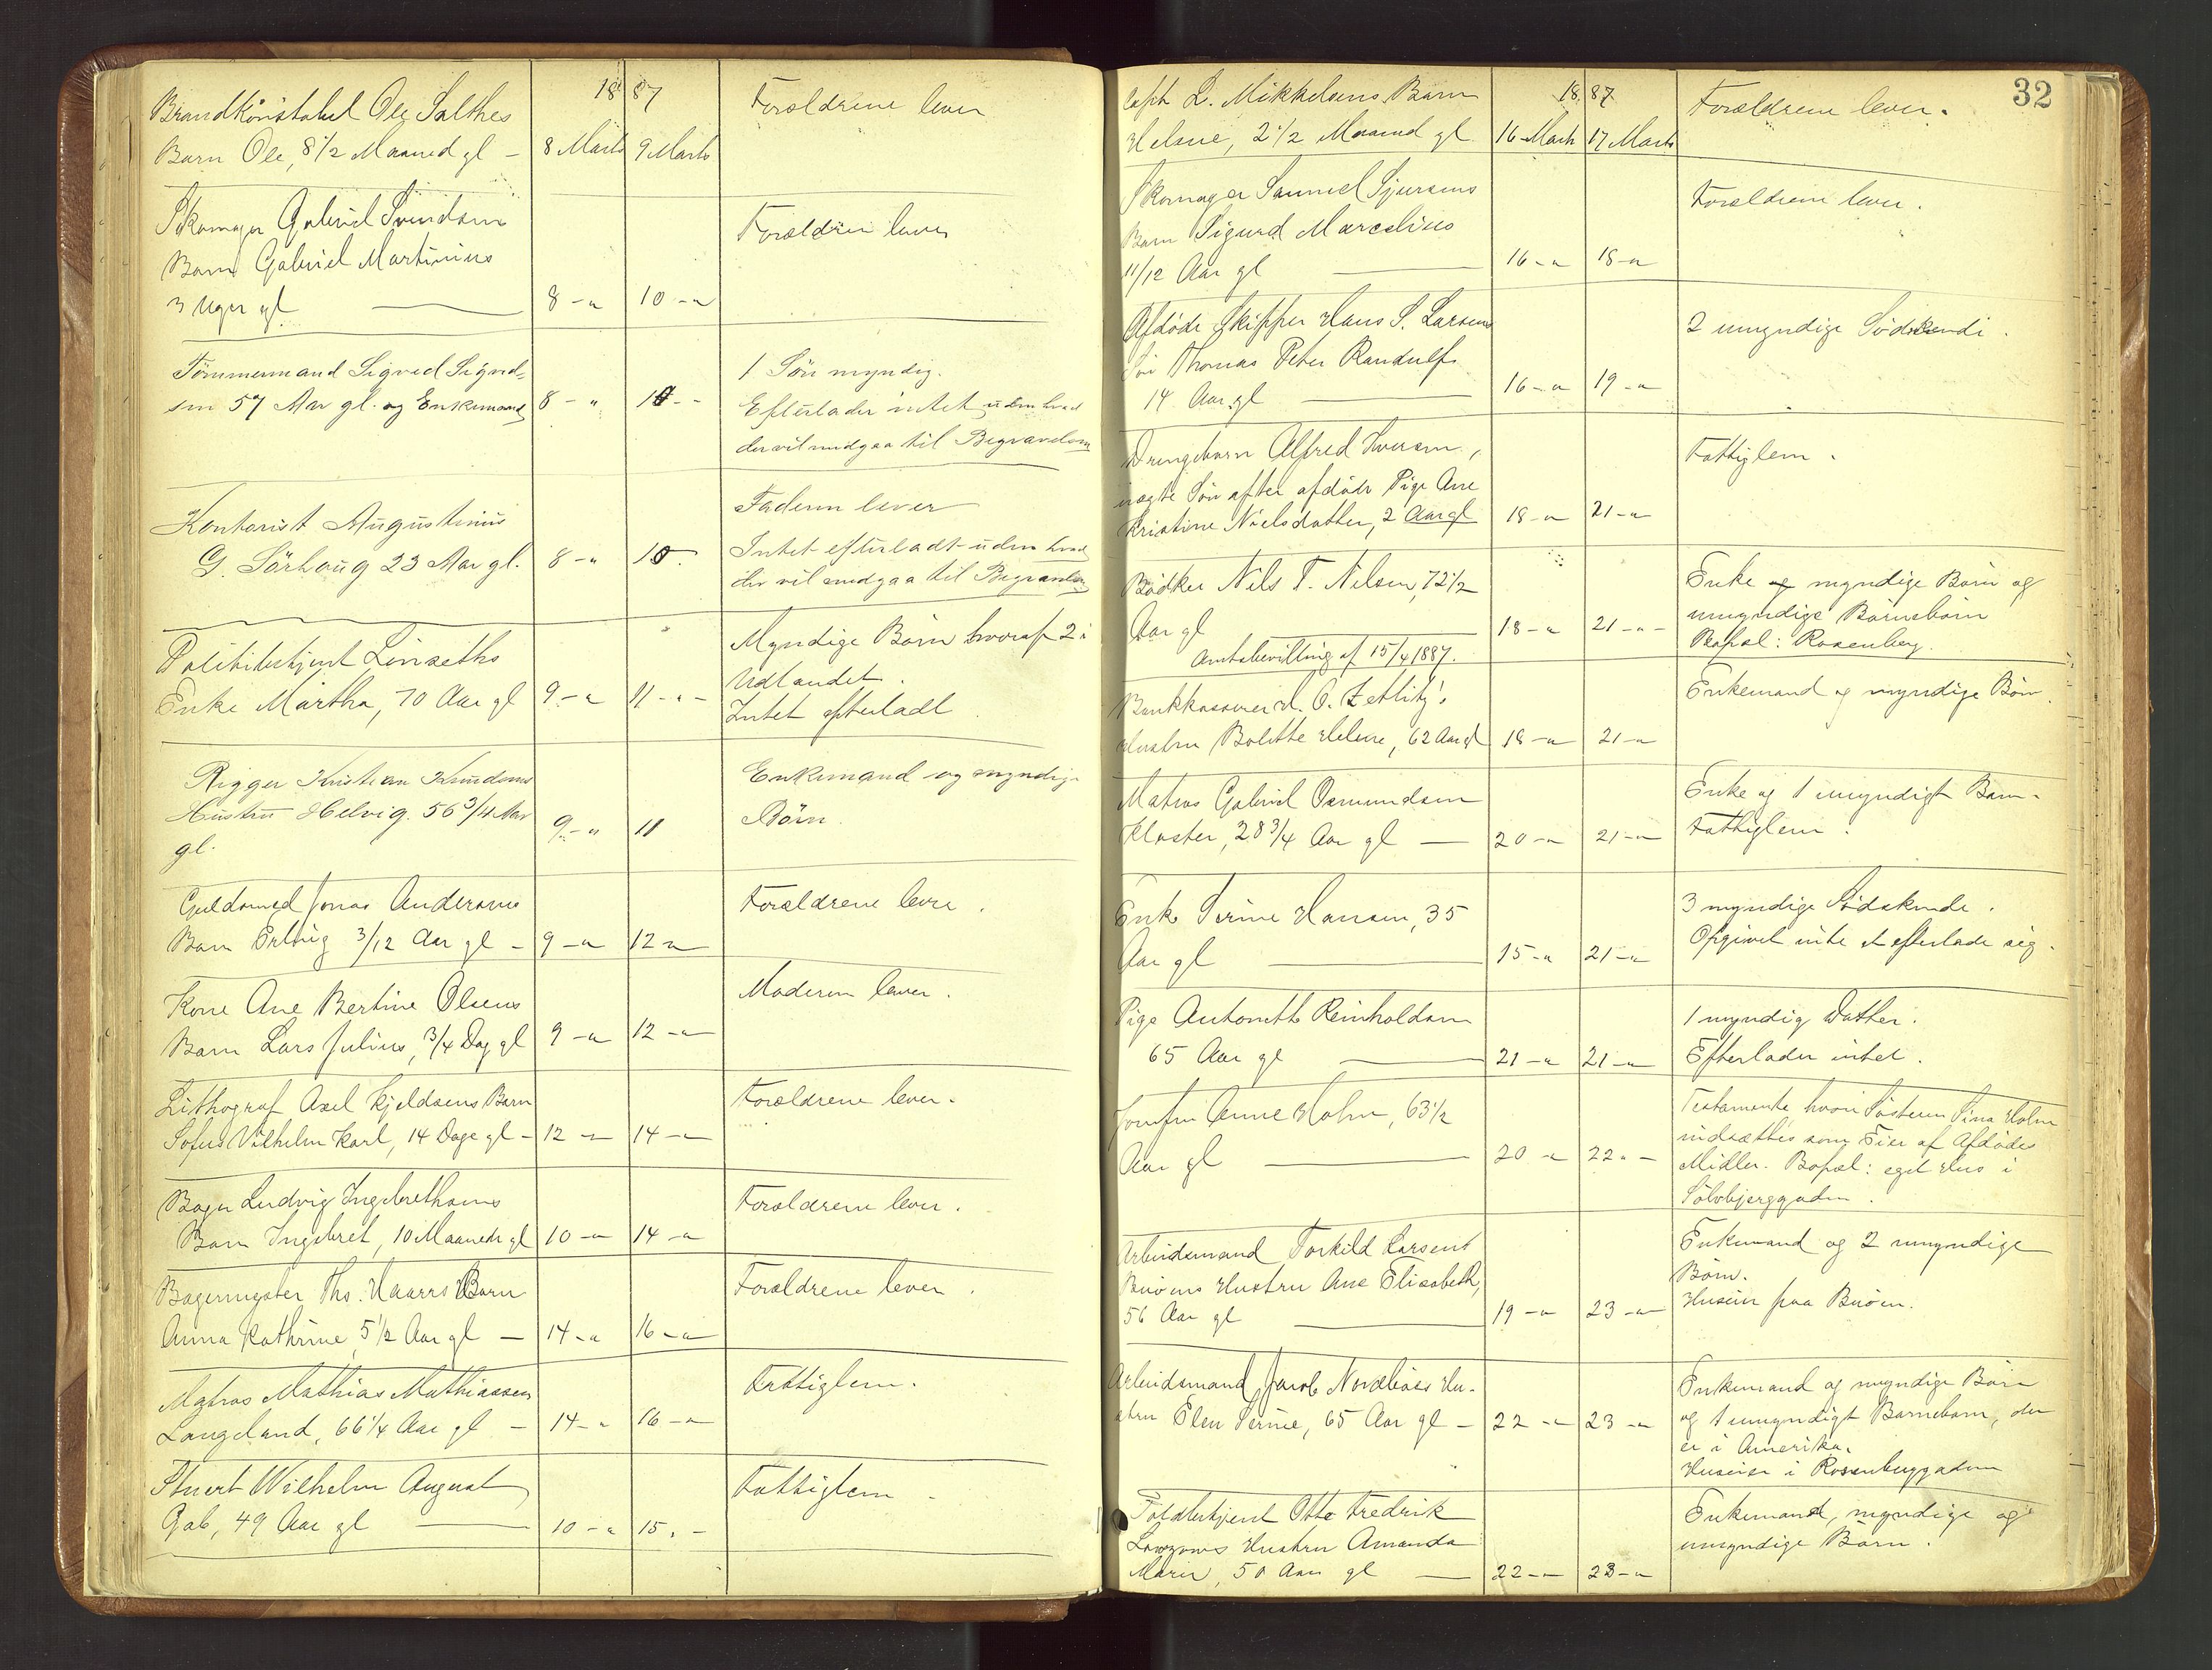 18 87
Brandkonstabel Ole Salthes
Barn Ole, 8 1/2 Maaned gl - 8 Marts 9 Marts
Forældrene lever
Skomager Gabriel Svendsen
Barn Gabriel Martinius
3 Uger gl 8 - " 10 - "
Forældrene lever
Tömmermand Sigved Sigved-
sen 57 Aar gl. og Enkemand 8 - " 10 - -
1 Sön myndig.
Efterlader intet uden hvad
der vil medgaa til Begravelsen
Kontorist Augustinus
G. Sörhaug 23 Aar gl. 8 - " 10
Faderen lever
Intet efterladt uden hvad
der vil medgaa til Begravelsen
Politibetjent Linseths
Enke Martha, 70 Aar gl 9 - " 11 - " -
Myndige Börn hvoraf 2 i
Udlandet.
Intet efterladt
Rigger Kristian Knudsens
Hustru Helvig. 56 3/4 Aar
gl. 9 - " 11
Enkemand og myndige
Börn.
Guldsmed Jonas Andersens
Barn 3/12 Aar gl - 9 - " 12 "
Forældrene leve.
Kone Ane Bertine Olsens
Barn Lars Julius, 3/4 Dag gl 9 - " 12 - "
Moderen lever.
Lithograf Axel Kjeldsens Barn
Sofus Vilhelm Karl, 14 Dage gl - 12 - 14 - "
Forældrene lever.
Bager Ludvig Ingebrethsens
Barn Ingebret, 10 Maaneder gl 10 - " 14 - "
Forældrene lever.
Bagermester Ths. Haarrs Barn
Anna Kathrine 5 1/2 Aar gl - 14 - " 16 - "
Forældrene lever.
Matros Mathias Mathiassen
Langeland, 66 1/4 Aar gl - 14 - " 16 - "
Fattiglem.
Stuert Wilhelm August
Gab, 49 Aar gl 10 - " 15 " -
Fattiglem -
32
18 87
Capt L. Mikkelsens Barn
Helene, 2 1/2 Maaned gl 16 Marts 17 Marts
Forældrene lever.
Skomager Samuel Sjursens
Barn Sigurd Marcelius
11/12 Aar gl 16 - " 18 - "
Forældrene lever.
Afdöde Skipper Hans S. Larsens
Sön Thomas Peter Randulf
14 Aar gl 16 - " 19 - "
2 umyndige Södskende.
Drengebarn Alfred Iversen,
uægte Sön efter afdöde Pige Ane
Kristine Nielsdatter, 2 Aar gl 18 - " 21 - "
Fattiglem.
Bödker Nils T. Nilsen, 72 1/2
Aar gl 18 - " 21 - " -
Amtsbevilling af 15/4 1887.
Enke og myndige Börn og
umyndige Barnebörn
Bopæl: Rosenberg.
Bankkasserer H. O. Zetlitz's
Hustru Bolette Helene, 62 Aar gl 18 - " 21 - "
Enkemand og myndige Börn.
Matros Gabriel Osmundsen
Kloster, 28 3/4 Aar gl - 20 - " 21 - "
Enke og 1 umyndigt Barn.
Fattiglem.
Enke Serine Hansen, 35
Aar gl 15 - " 21 - "
3 myndige Södskende.
Opgivet intet at efterlade sig.
Pige Antonette Reinholdsen
65 Aar gl 21 - " 21 - "
1 myndig Datter.
Efterlader intet.
Jomfru Anne Holm, 63 1/2
Aar gl 20 - " 22 " -
Testamente, hvori Sösteren Sina Holm
indsættes som Eier af Afdödes
Midler. Bopæl: eget Hus i
Sölvbjerggaden.
Arbeidsmand Torkild Larsens
Buöens Hustru Ane Elisabeth,
56 Aar gl 19 - " 23 - "
Enkemand og 2 umyndige
Börn.
Huseier paa Buöen.
Arbeidsmand Jacob Nordböes Hu-
stru Elen Serine, 65 Aar gl - 22 - " 23 - "
Enkemand og myndige Börn
og 1 umyndigt Barnebarn, der
er i Amerika.
Huseier i Rosenberggaden
Toldbetjent Otto Fredrik
Hustru Amanda
Marie, 50 Aar gl - 22 - " 23 - "
Enkemand, myndige og
umyndige Börn.